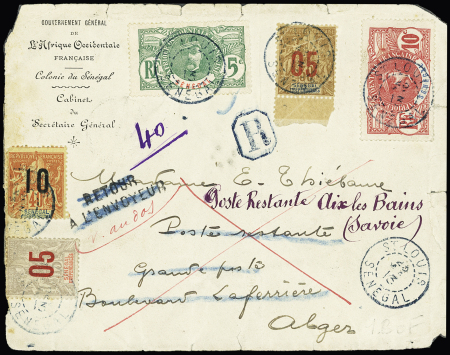 GOUVERNEMENT GÉNÉRAL
DE
L'Afrique Occidentale
FRANÇAISE
Colonie du Sénégal
Cabinet
du
Secrétaire Général
5
05
10
40
R
10
05
RETOUR
A L'ENVOYEUR
Monsieur E. Thiébane
Poste Restante Aix les Bains
(Savoie)
Poste restante
Grande poste
Boulevard Laferrière
Alger
ST LOUIS
SÉNÉGAL